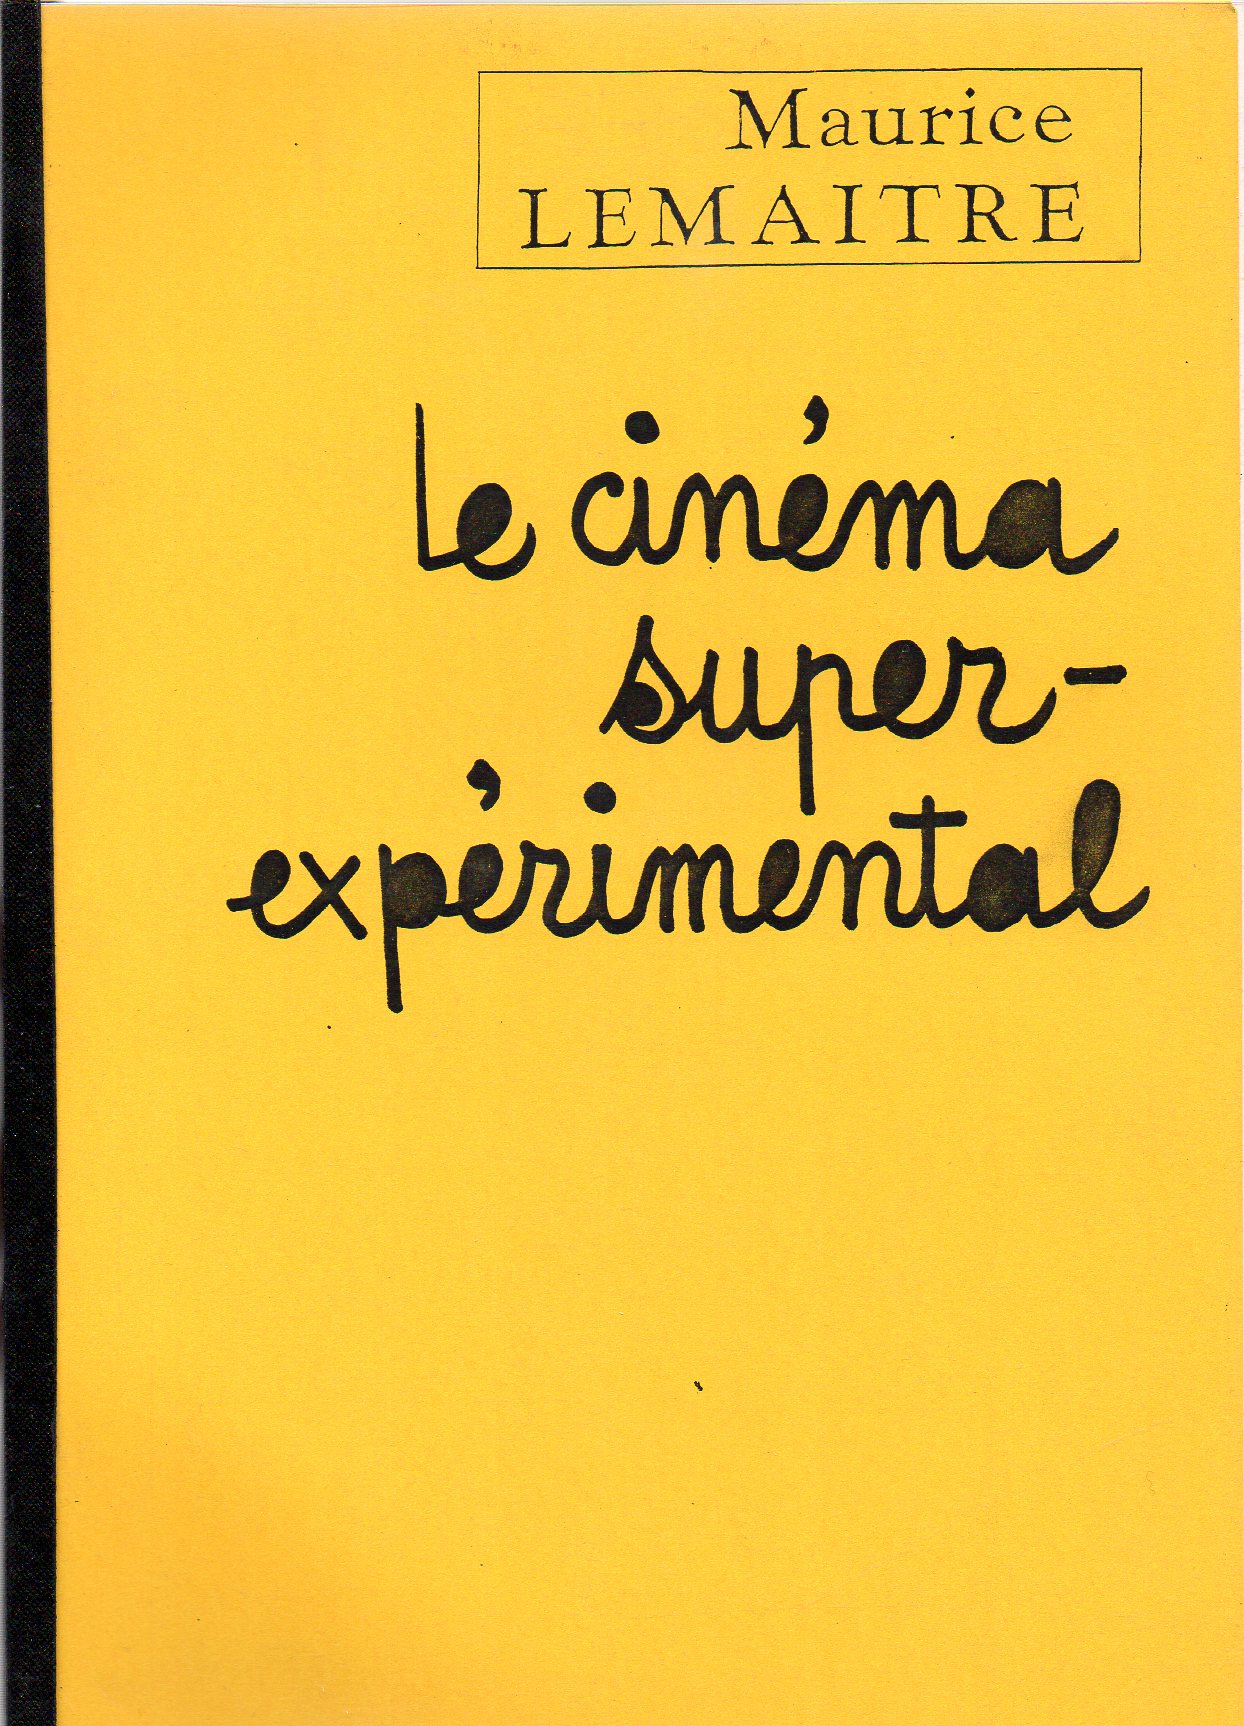 Maurice
LEMAITRE
le cinéma
super-
expérimental